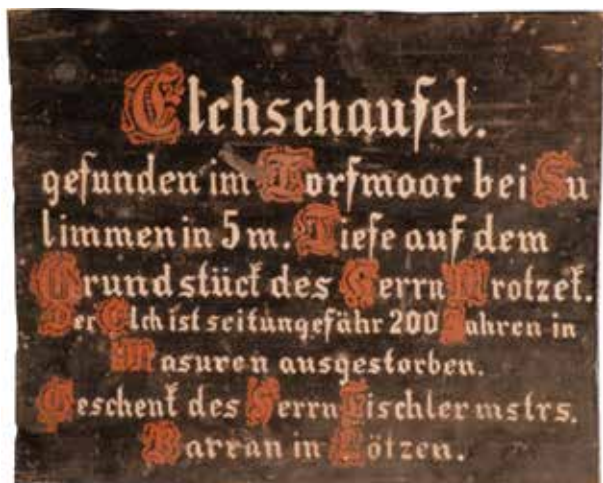 Elchschaufel.
gefunden im Torfmoor bei Su
limmen in 5 m. Tiefe auf dem
Grundstück des Herrn Mrotzek.
Der Elch ist seit ungefähr 200 Jahren in
Masuren ausgestorben.
Geschenk des Herrn Tischlermstrs.
Barran in Lötzen.